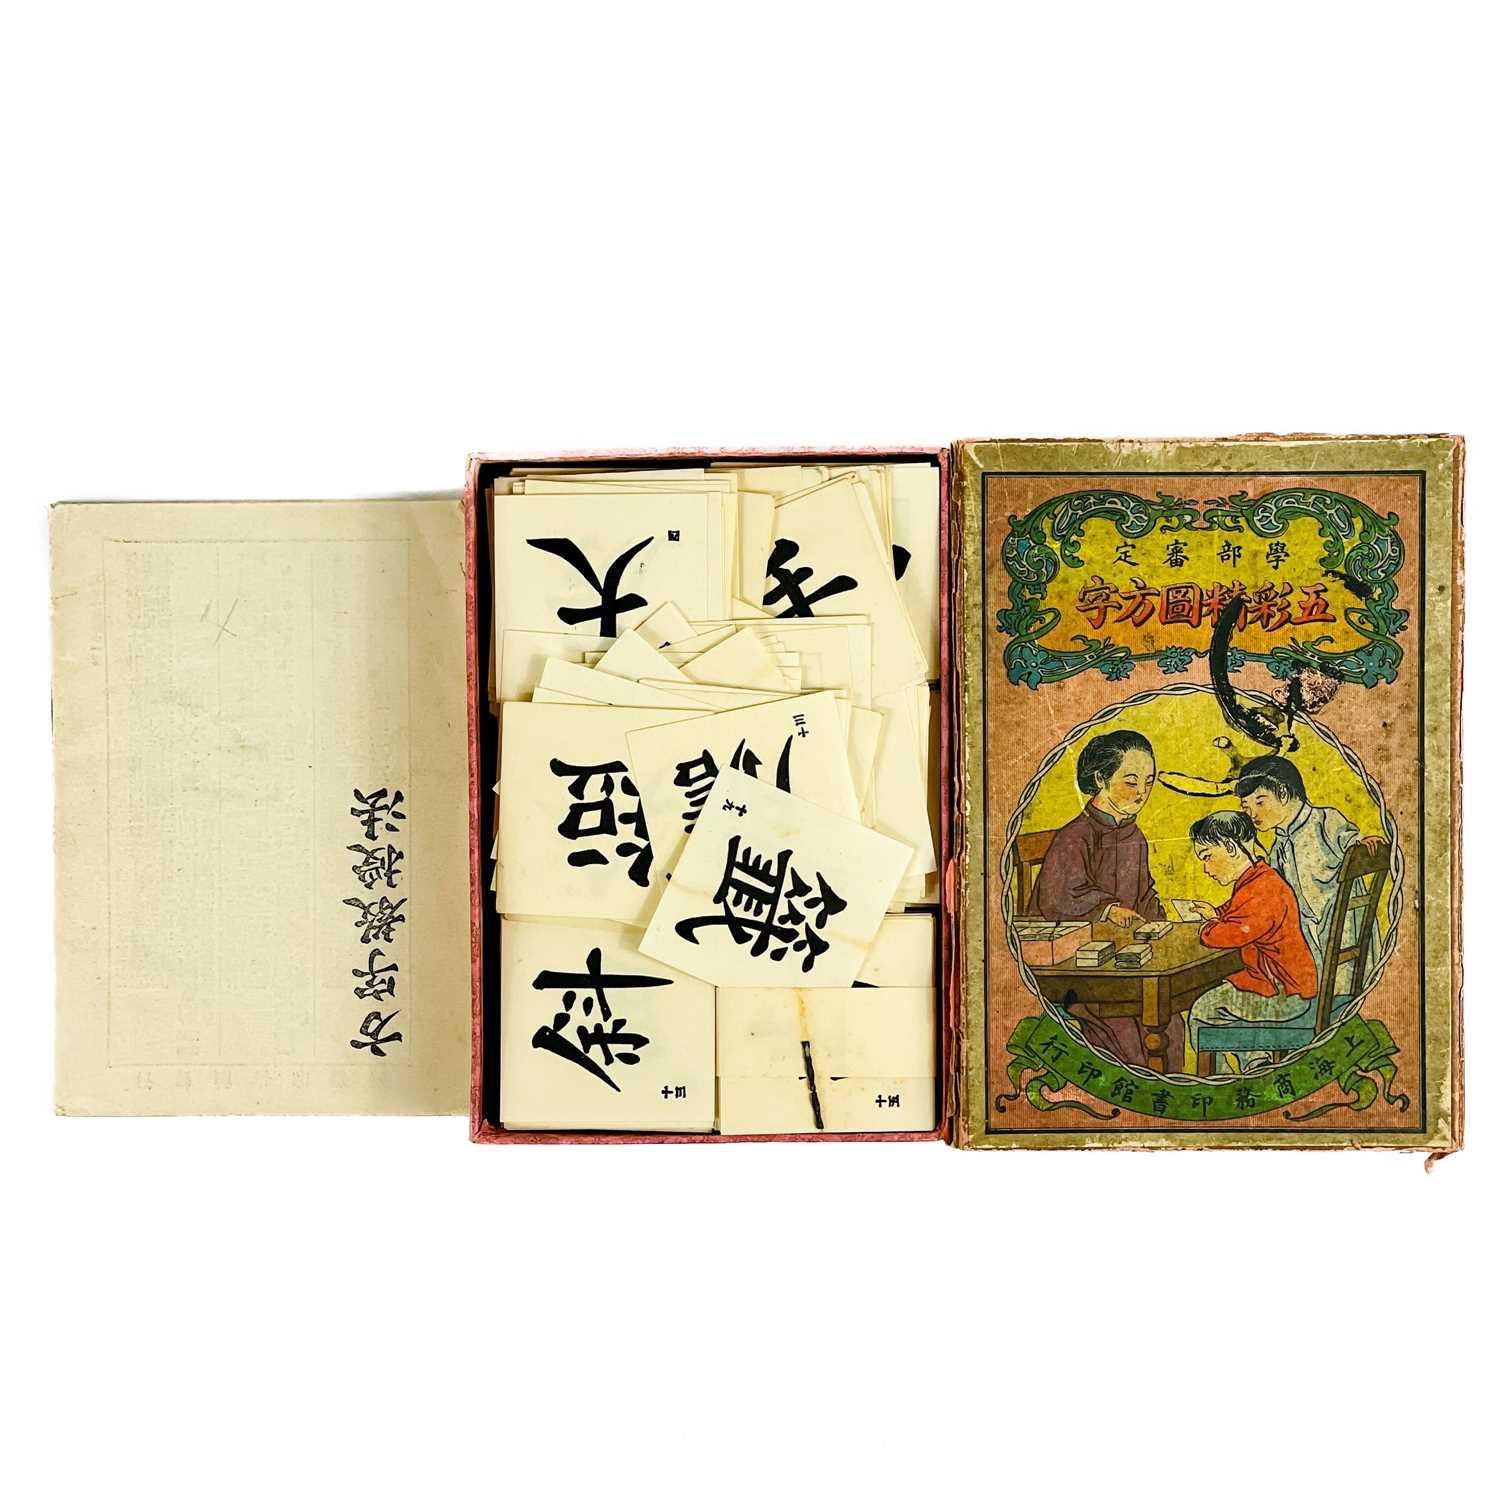 學部審定
五彩精圖方字
上海商務印書館印行
方字教授法
大
四
籤
十九
三十
科
三十
五十